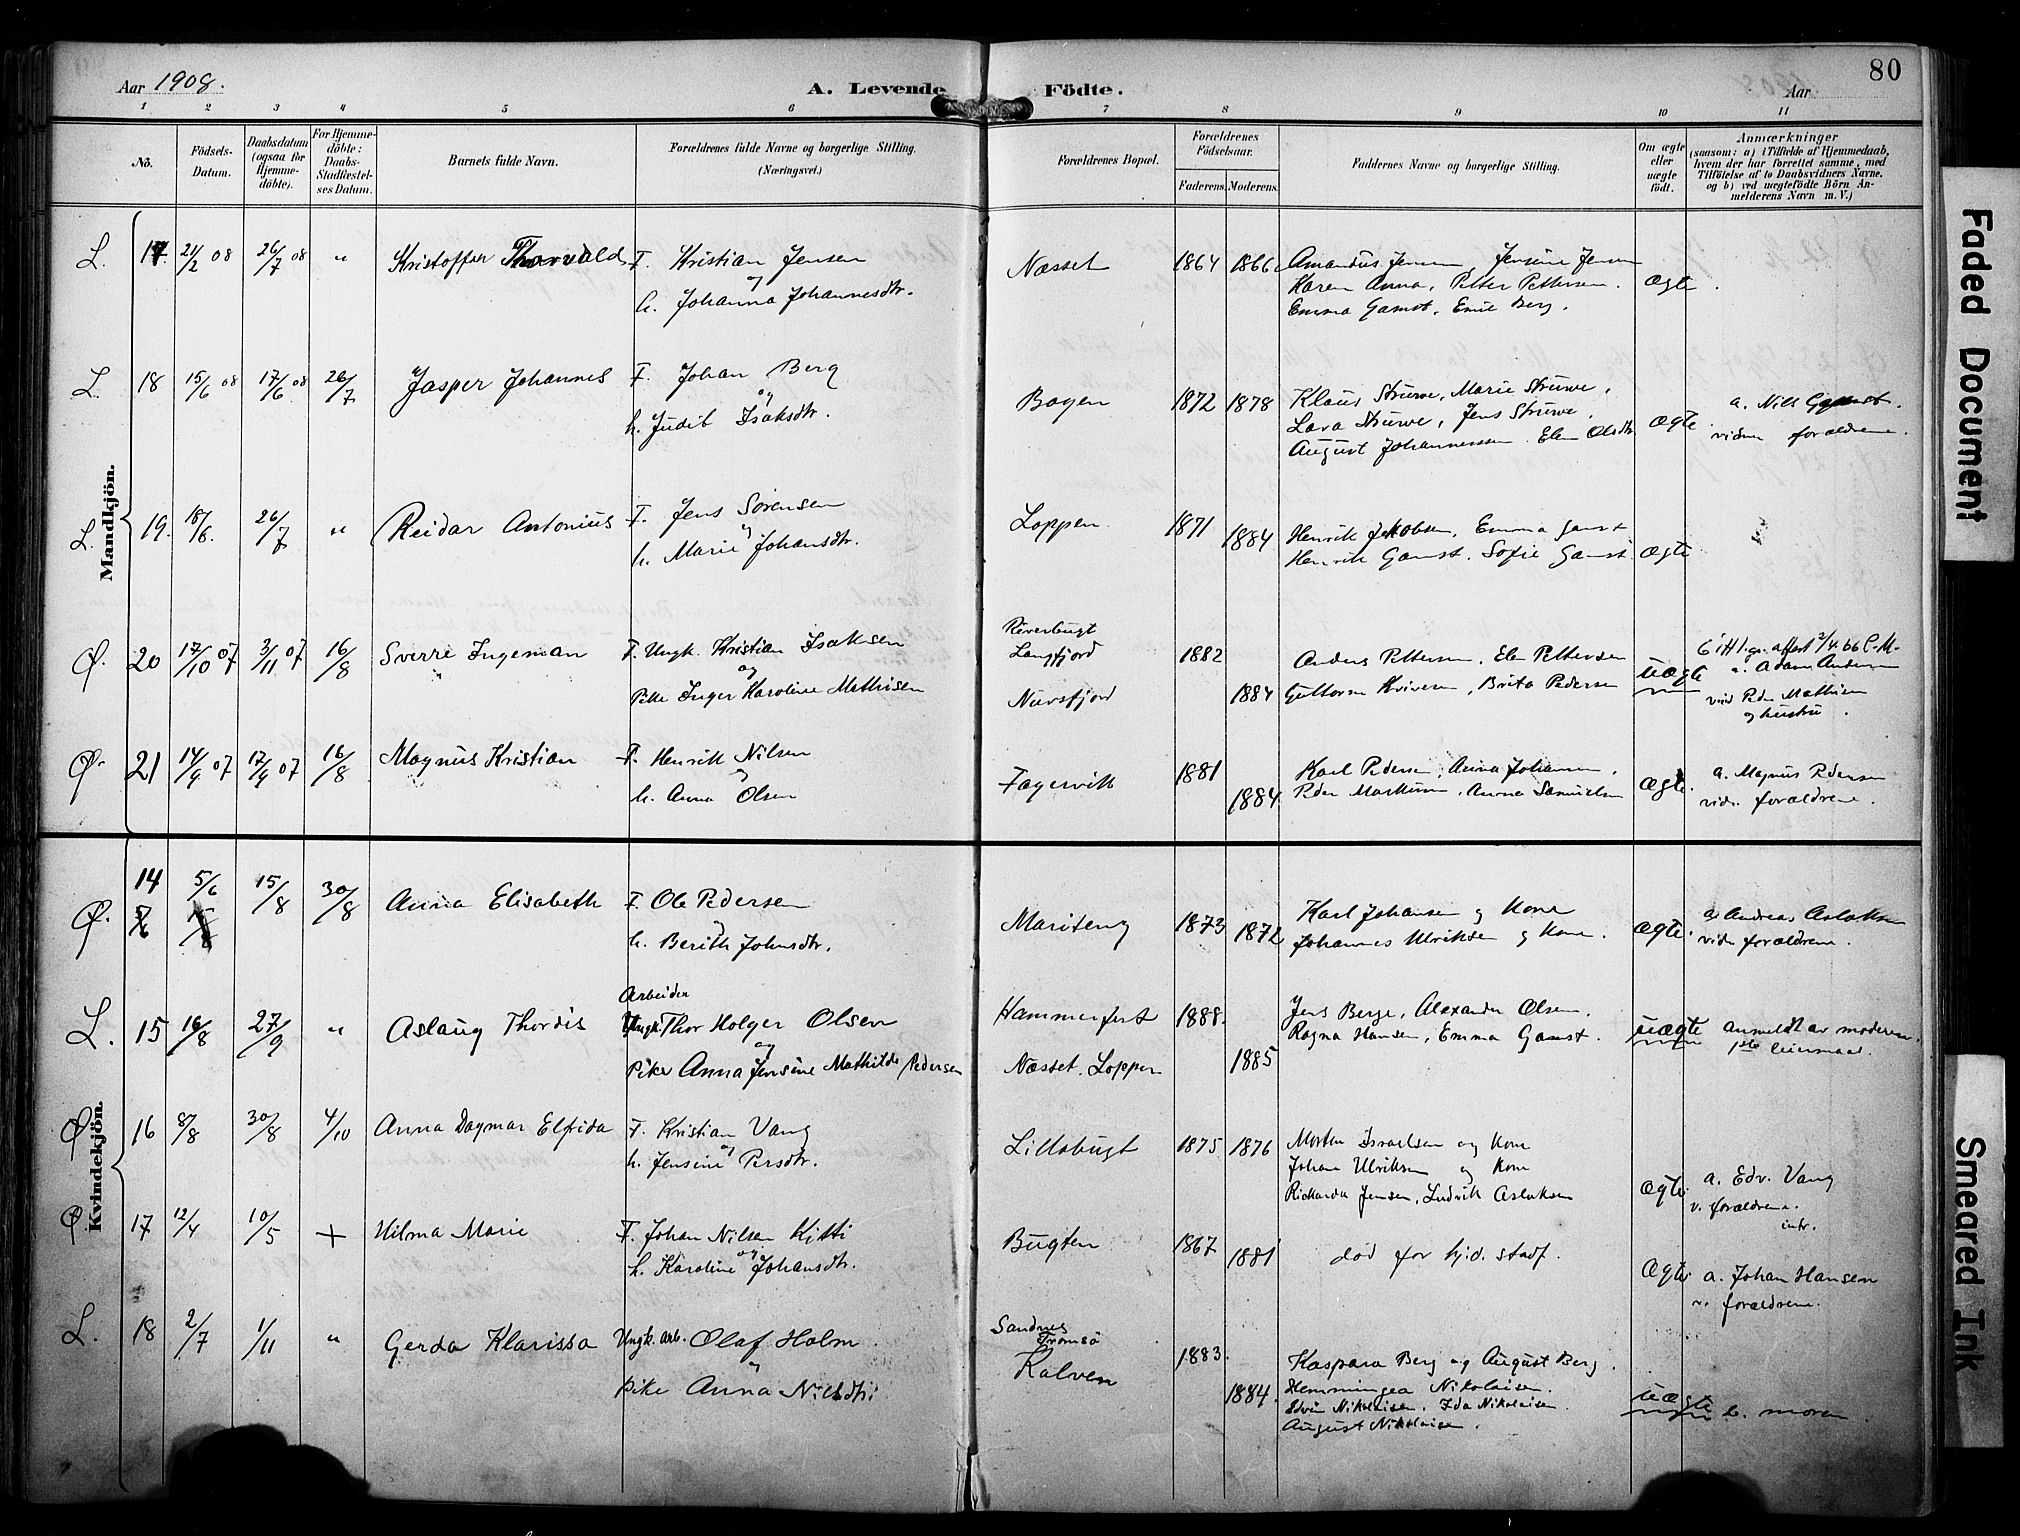 Aar 1908.
A. Levende Födte.
Aar
80
1 2 3 4 5 6 7 8 9 10 11
No.
Födsels-Datum.
Daabsdatum (ogsaa for Hjemme-döbte).
For Hjemme-döbte: Daabs-Stadfæstel-ses Datum.
Barnets fulde Navn.
Forældrenes fulde Navne og borgerlige Stilling. (Næringsvei.)
Forældrenes Bopæl.
Forældrenes Födselsaar.
Faderens. Moderens.
Faddernes Navne og borgerlige Stilling.
Om ægte eller uægte födt.
Anmærkninger
(saasom: a) i Tilfælde af Hjemmedaab, hvem der har forrettet samme, med Tilföielse af to Daabsvidners Navne. og b) ved uægtefödte Börn An-melderens Navn m. V.)
Mandkjön.
L. 17. 21/2 08 26/7 08 " Kristoffer Thorvald F. Kristian Jensen Næsset 1864 1866 Amandus Jensen Jensine Jensen
og Karen Anna, Petter Pettersen. ægte.
h. Johanna Johannesdtr. Emma Gamst, Emil Berg.
L. 18 15/6 08 17/6 08 26/7 Jasper Johannes F. Johan Berg Bogen 1872 1878 Klaus Struwe, Marie Struwe, a. Nils Gamst.
og Lara Struwe, Jens Struwe, ægte. vidner forældrene.
h. Judit Isaksdtr. August Johannessen. Elen Olsdtr
L. 19. 18/6. 26/7 " Reidar Antonius F. Jens Sörensen Loppen. 1871 1884 Henrik Jakobsen, Emma Gamst
og
h. Marie Johansdtr. Henrik Gamst. Sofie Gamst ægte
Ø. 20 17/10 07 3/11 07 16/8 Sverre Ingeman F. Ungk. Kristian Isaksen Langfjord 1882 Anders Pettersen, Elen Pettersen
og uægte a. Adam Andersen
Pike Inger Karoline Mathisen Nuvsfjord 1884 Guttorm Kviversen, Brita Pedersen vid Peder Mathisen
og hustru.
Ø. 21 14/9 07 17/9 07 16/8 Magnus Kristian F. Henrik Nilsen Fagervik 1881 Karl Pedersen, Anna Johansen, a. Magnus Pedersen
og ægte.
h. Anna Olsen 1884 Peder Markusen, Anna Samuelsen vidn. forældrene.
Kvindekjön.
Ø. 14 5/6 15/8 30/8 Anna Elisabeth F. Ole Pedersen Mariteng 1873 1872 Karl Johansen og Kone a. Andreas Aslaksen
og ægte.
h. Berith Johnsdtr. Johannes Ulriksen og Kone. vidn forældrene.
L. 15 16/8 27/9 " Aslaug Thordis Arbeider
Ungk. Thor Holger Olsen Hammerfest 1888. Jens Berge, Alexander Olsen,
og Ragna Hansen, Emma Gamst. uægte anmeldt av moderen.
Pike Anna Jensine Mathilde Pedersen Næsset. Loppen 1885 1ste leiermaal.
Ø 16 8/8 30/8 4/10 Anna Dagmar Elfrida F. Kristian Vang Lillebugt 1875 1876 Morten Israelsen og Kone
og Johan Ulriksen og Kone
h. Jensine Persdtr. Rickarda Jensen, Ludvik Aslaksen ægte. a. Edv. Vang
v. forældrene.
Ø 17 12/4 10/5 + Hilma Marie F. Johan Nilsen Kitti Bugten 1867 1881 död for hj.d. stadf.
og
h. Karoline Johansdtr. ægte. a. Johan Hansen
v. forældrene.
L. 18 2/7 1/11 " Gerda Klarissa Ungk. arb. Olaf Holm Sandnes Tromsö 1883.
og Kalven Kaspara Berg og August Berg.
pike Anna Nilsdtr. 1884. Hemmingea Nikolaisen. uægte b. moren
Edvin Nikolaisen. Ida Nikolaisen.
August Nikolaisen.
Faded Document
Smeared Ink